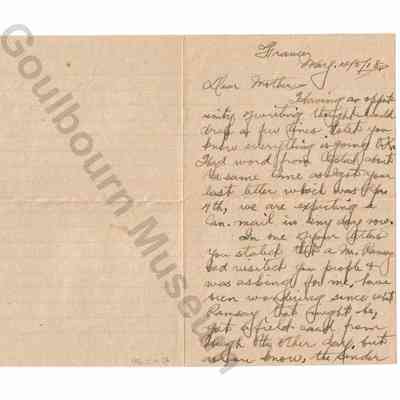 France,
May,
Dear Mother
Having an opport
unity of writing thought I would
drop a few lines to let you
know everything is going O.K.
Had word from about
the same time as I got your
last letter which was Apr
4th, we are expecting a
Can. mail in any day now.
In one of your letters
you stated that a Mr. Ramsay
had visited you people &
was asking for me, have
been wondering since what
Ramsay that might be,
got a field card from
Hugh the other day, but
as you know, the sender
Goulbourn Museum